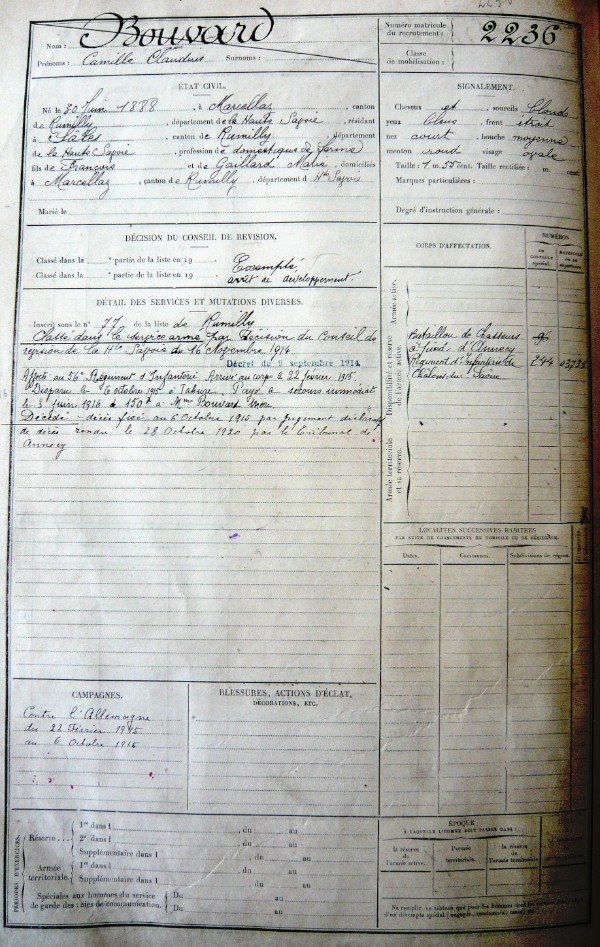 Nom : Bouvard
Prénoms : Camille Claudius Surnoms :
Numéro matricule du recrutement : 2236
Classe de mobilisation :
ÉTAT CIVIL.
Né le 20 Juin 1888, à Marcellaz, canton
de Rumilly, département de la Haute Savoie, résidant
à canton de Rumilly, département
de la Haute Savoie, profession de domestique de ferme
fils de François et de Gaillard Marie, domiciliés
à Marcellaz, canton de Rumilly, département d Hte Savoie
Marié le
SIGNALEMENT.
Cheveux et sourcils blonds
yeux bleus, front étroit
nez court, bouche moyenne
menton rond visage ovale
Taille : 1 m. cent. Taille rectifiée : m. cent.
Marques particulières :
Degré d'instruction générale :
DÉCISION DU CONSEIL DE REVISION.
Classé dans la partie de la liste en 19 Exempté,
Classé dans la partie de la liste en 19 arrêt de developpement.
DÉTAIL DES SERVICES ET MUTATIONS DIVERSES.
Inscrit sous le n° 77 de la liste de Rumilly
Classé dans le service armé par Décision du Conseil de
revision de la Hte Savoie du 16 Novembre 1914
Décret du 9 septembre 1914
Affecté au 56e Régiment d'Infanterie. Arrivé au corps le 22 février 1915.
Disparu le 6 octobre 1915 à Tahure. Payé a secours immédiat
le Juin 1916 de 150f à Mme Bouvard Mère
Décédé décès fixé au 6 Octobre 1915 par jugement déclaratif
de décès rendu le 28 Octobre 1920 par le Tribunal de
Annecy
CORPS D'AFFECTATION.
NUMÉROS
Armée active.
Disponibilité et réserve de l'armée active.
Bataillon de Chasseurs
à pied d'Annecy
Régiment d'Infanterie de 244
Châlons sur Saône
Armée territoriale et sa réserve.
LOCALITÉS SUCCESSIVES HABITÉES
PAR SUITE DE CHANGEMENTS DE DOMICILE OU DE RÉSIDENCE.
Dates. Communes. Subdivisions de région.
CAMPAGNES.
Contre l'Allemagne
du 22 Février 1915
au 6 Octobre 1915
BLESSURES, ACTIONS D'ÉCLAT,
DÉCORATIONS, ETC.
PÉRIODES D'EXERCICES.
Réserve
1re dans l , du au
2e dans l , du au
Supplémentaire dans l , du au
Armée territoriale.
1re dans l , du au
Supplémentaire dans l , du au
Spéciales aux hommes du service
de garde des voies de communication.
Du au
Du au
ÉPOQUE
À LAQUELLE L'HOMME DOIT PASSER DANS :
la réserve de l'armée active.
l'armée territoriale.
la réserve de l'armée territoriale.